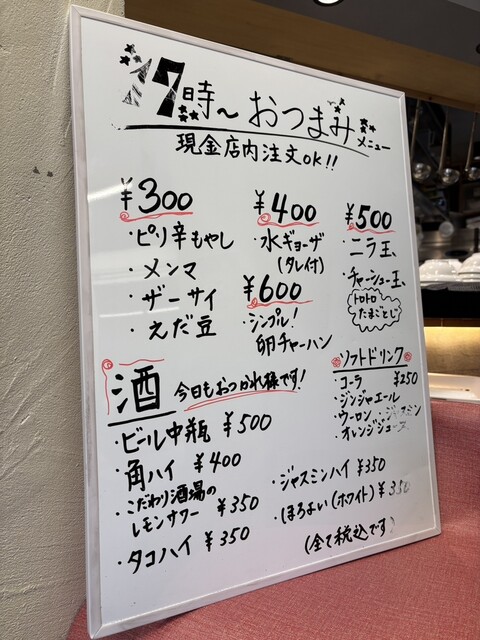 17時～おつまみメニュー
現金店内注文OK!!
¥300
・ピリ辛もやし
・メンマ
・ザーサイ
・えだ豆
¥400
・水ギョーザ
(タレ付)
¥600
・シンプル!
卵チャーハン
¥500
・ニラ玉、
・チャーシュー玉、
トロトロ
たまごとじ
酒 今日もおつかれ様です!
・ビール中瓶 ¥500
・角ハイ ¥400
・こだわり酒場の
レモンサワー ¥350
・タコハイ ¥350
ソフトドリンク
・コーラ ¥250
・ジンジャエール
・ウーロン・ジャスミン
・オレンジジュース
・ジャスミンハイ ¥350
・ほろよい(ホワイト) ¥350
(全て税込です)